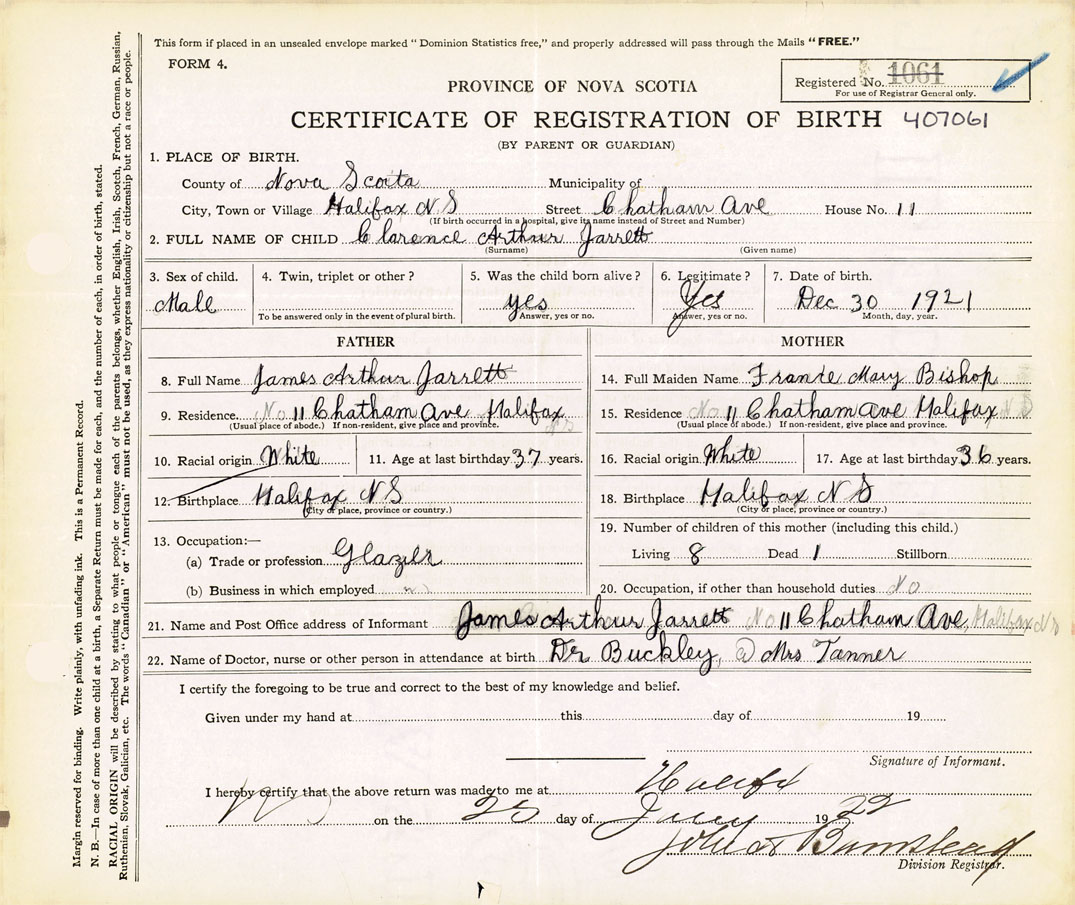 This form if placed in an unsealed envelope marked "Dominion Statistics free," and properly addressed will pass through the Mails "FREE."
FORM 4.
Registered No. 1061
For use of Registrar General only.
PROVINCE OF NOVA SCOTIA
CERTIFICATE OF REGISTRATION OF BIRTH 407061
(BY PARENT OR GUARDIAN)
1. PLACE OF BIRTH.
County of Nova Scotia Municipality of
City, Town or Village Halifax N S Street Chatham Ave House No. 11
(If birth occurred in a hospital, give its name instead of Street and Number)
2. FULL NAME OF CHILD Clarence Arthur Jarrett
(Surname) (Given name)
3. Sex of child. 4. Twin, triplet or other? 5. Was the child born alive? 6. Legitimate? 7. Date of birth.
Male yes Yes Dec 30 1921
To be answered only in the event of plural birth. Answer, yes or no. Answer, yes or no. Month, day, year.
FATHER
8. Full Name James Arthur Jarrett
9. Residence. No 11 Chatham Ave Halifax N S
(Usual place of abode.) If non-resident, give place and province.
10. Racial origin White 11. Age at last birthday 37 years.
12. Birthplace Halifax N S
(City or place, province or country.)
13. Occupation:—
(a) Trade or profession Glazier
(b) Business in which employed
MOTHER
14. Full Maiden Name Mary Bishop
15. Residence No 11 Chatham Ave Halifax N S
(Usual place of abode.) If non-resident, give place and province.
16. Racial origin White 17. Age at last birthday 36 years.
18. Birthplace Halifax N S
(City or place, province or country.)
19. Number of children of this mother (including this child.)
Living 8 Dead 1 Stillborn
20. Occupation, if other than household duties No
21. Name and Post Office address of Informant James Arthur Jarrett No 11 Chatham Ave Halifax N S
22. Name of Doctor, nurse or other person in attendance at birth Dr Buckley, Mrs Tanner
I certify the foregoing to be true and correct to the best of my knowledge and belief.
Given under my hand at this day of 19
Signature of Informant.
I hereby certify that the above return was made to me at Halifx
on the 25 day of 1922
Division Registrar.
Margin reserved for binding. Write plainly, with unfading ink. This is a Permanent Record.
N. B.—In case of more than one child at a birth, a Separate Return must be made for each, and the number of each, in order of birth, stated.
RACIAL ORIGIN will be described by stating to what people or tongue each of the parents belongs, whether English, Irish, Scotch, French, German, Russian,
Ruthenian, Slovak, Galician, etc. The words "Canadian" or "American" must not be used, as they express nationality or citizenship but not a race or people.